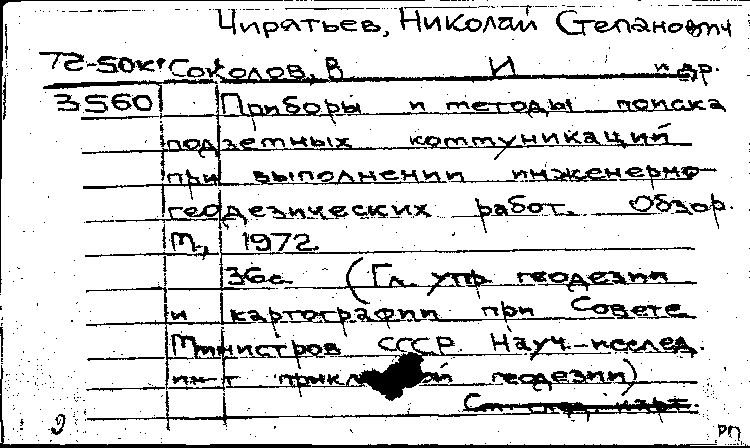 Чирятьев, Николай Степанович
72-50к Соколов, В И и др.
3560 Приборы и методы поиска
подземных коммуникаций
при выполнении инженерно-
геодезических работ. Обзор.
М., 1972.
36с. (Гл. упр геодезии
и картографии при Совете
Министров СССР. Науч.-исслед.
ин-т прикл ой геодезии)
См. след. карт.
9 РП